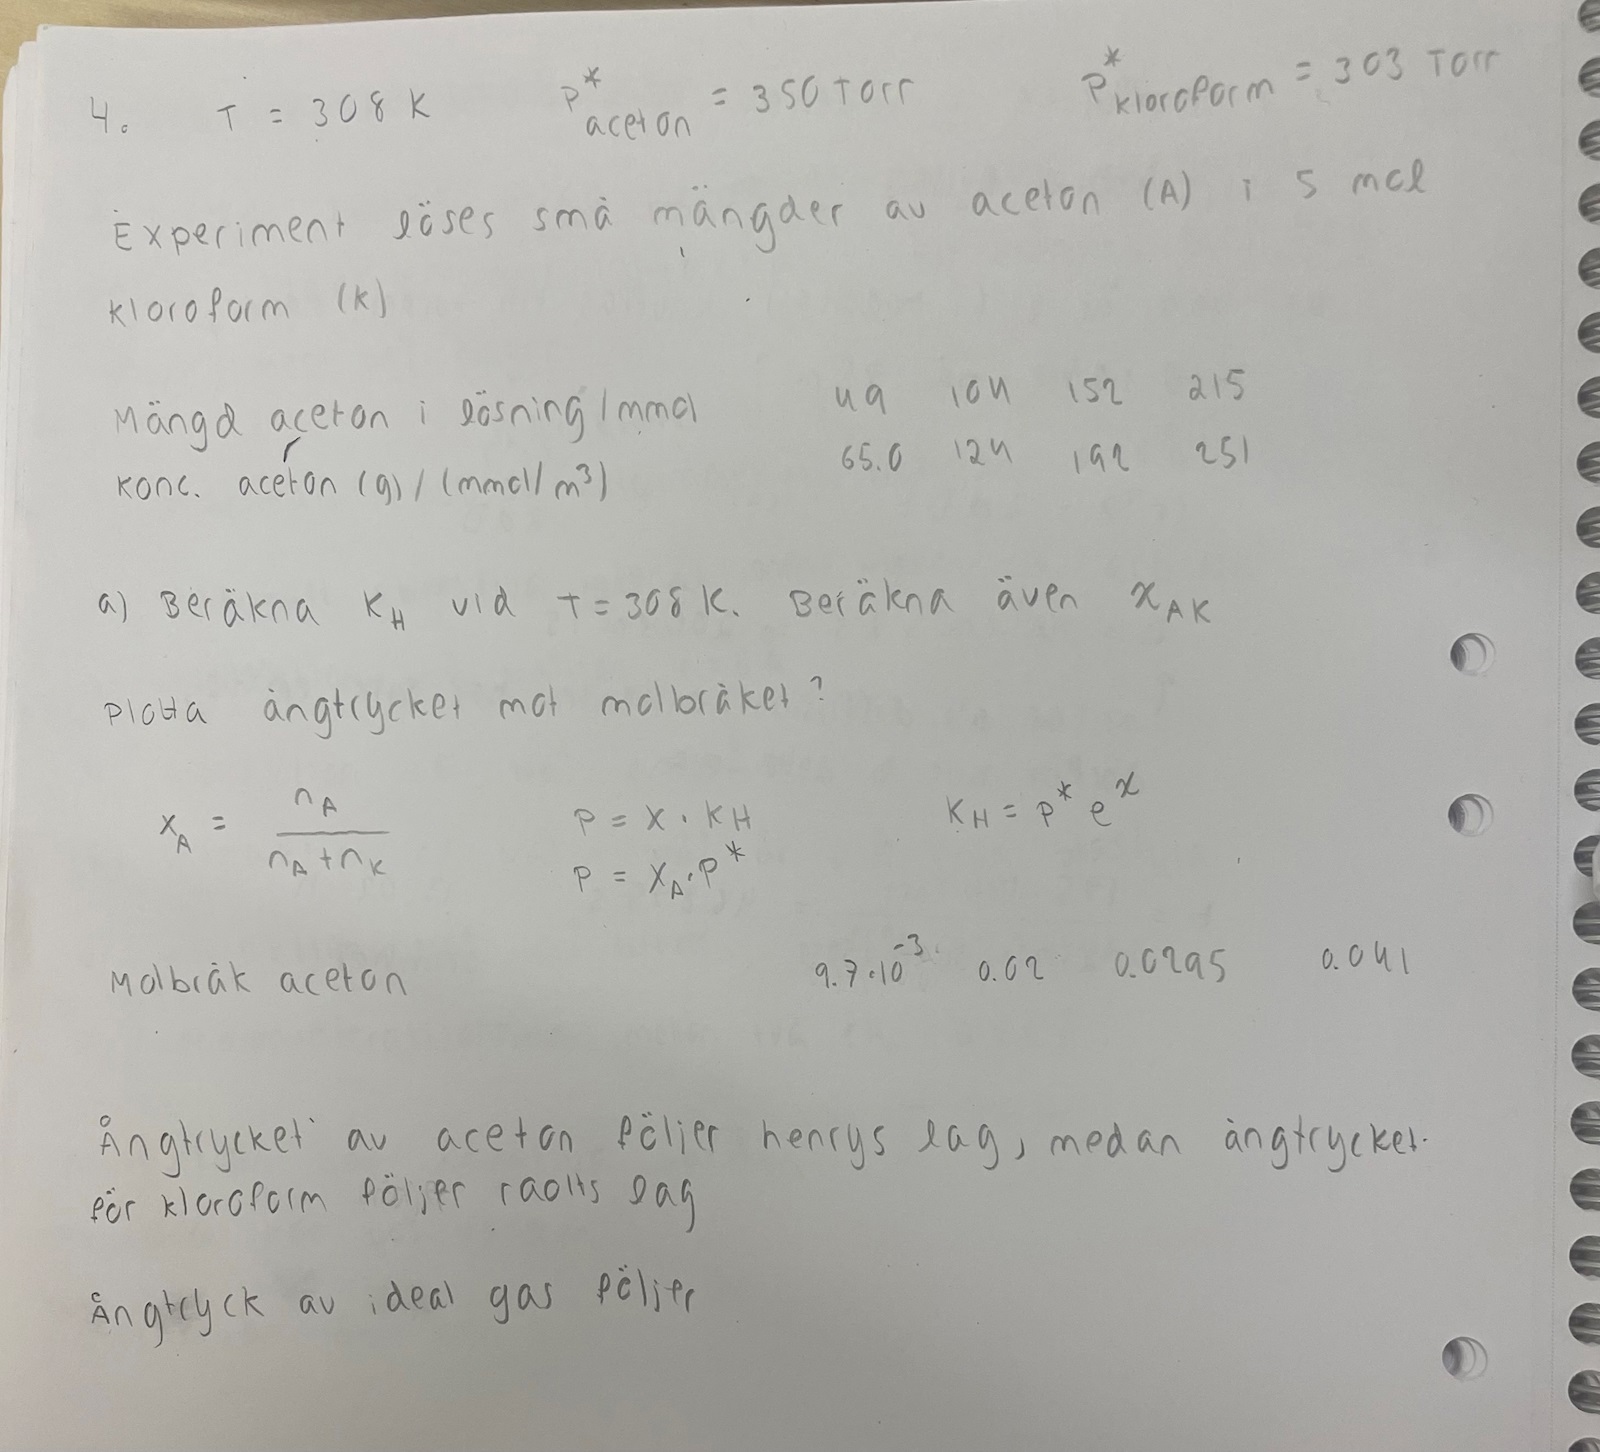 4. T = 308 K P*aceton = 350 Torr P*kloroform = 303 Torr
Experiment löses små mängder av aceton (A) i 5 mol
kloroform (k)
Mängd aceton i lösning / mmol 49 104 152 215
konc. aceton (g) / (mmol/m³) 65.0 124 192 251
a) Beräkna K_H vid T = 308 K. Beräkna även x_AK
Plotta ångtrycket mot molbråket?
x_A = n_A / (n_A + n_K) P = x · K_H K_H = P* e^x
P = x_A · P*
Molbråk aceton 9.7·10⁻³ 0.02 0.0295 0.041
Ångtrycket av aceton följer henrys lag, medan ångtrycket
för kloroform följer raolts lag
Ångtryck av ideal gas följer